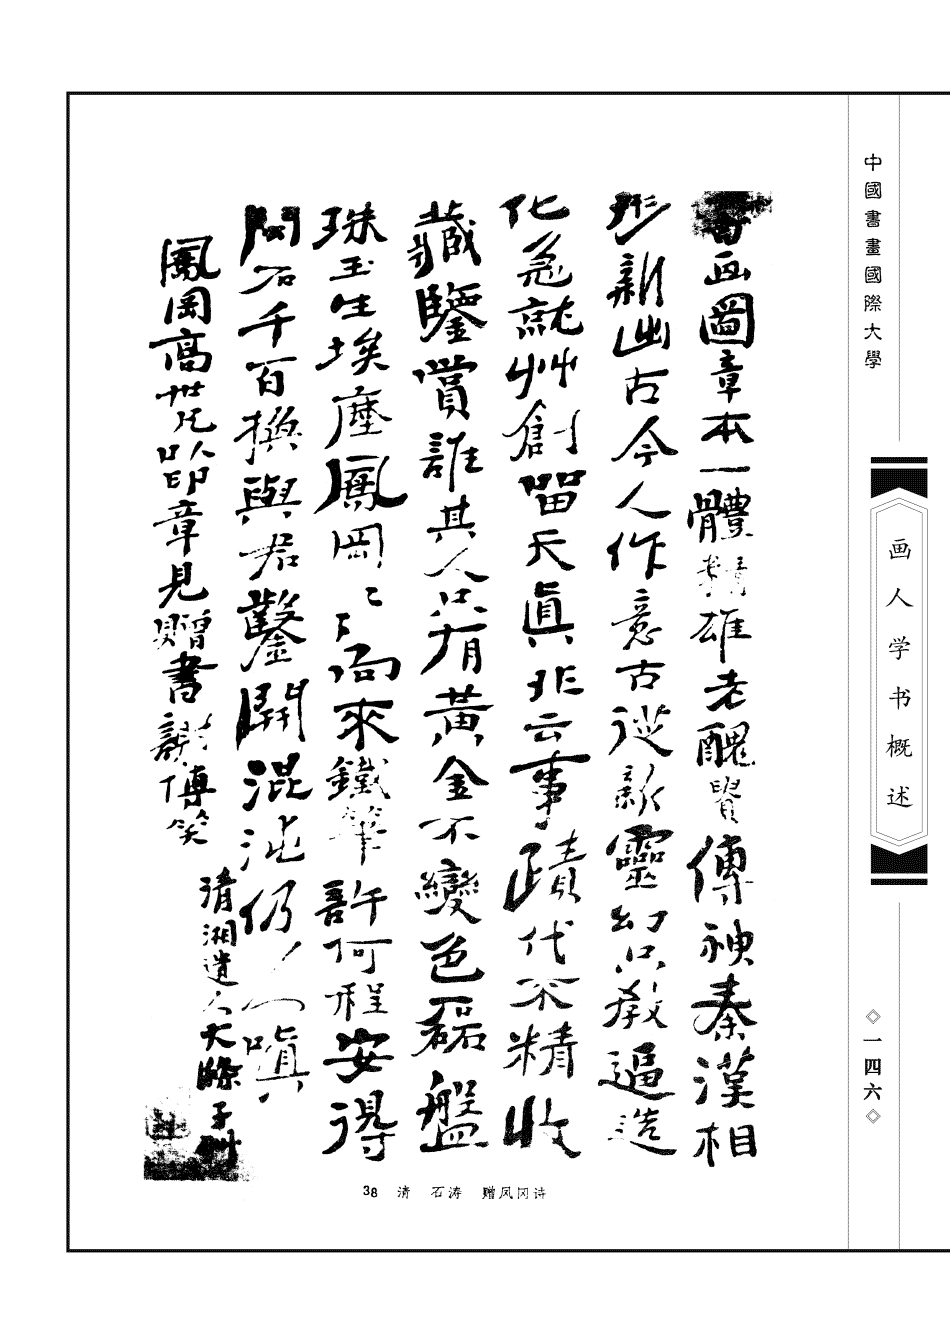 中國書畫國際大學
画人学书概述
◇一四六◇
書画圖章本一體精雄老醜貴傳神秦漢相
形新出古今人作意古從新靈幻只教逼造
化急就艸創留天眞非云事蹟代不精收
藏鑒賞誰其人只有黃金不變色磊盤
珠玉生埃塵鳳岡〻〻向來鐵筆許何程安得
閑石千百換與君鑿開混沌仍人嗔
鳳岡高世兄以印章見贈書謝博笑
清湘遺人大滌子艸
38 清 石涛 赠凤冈诗